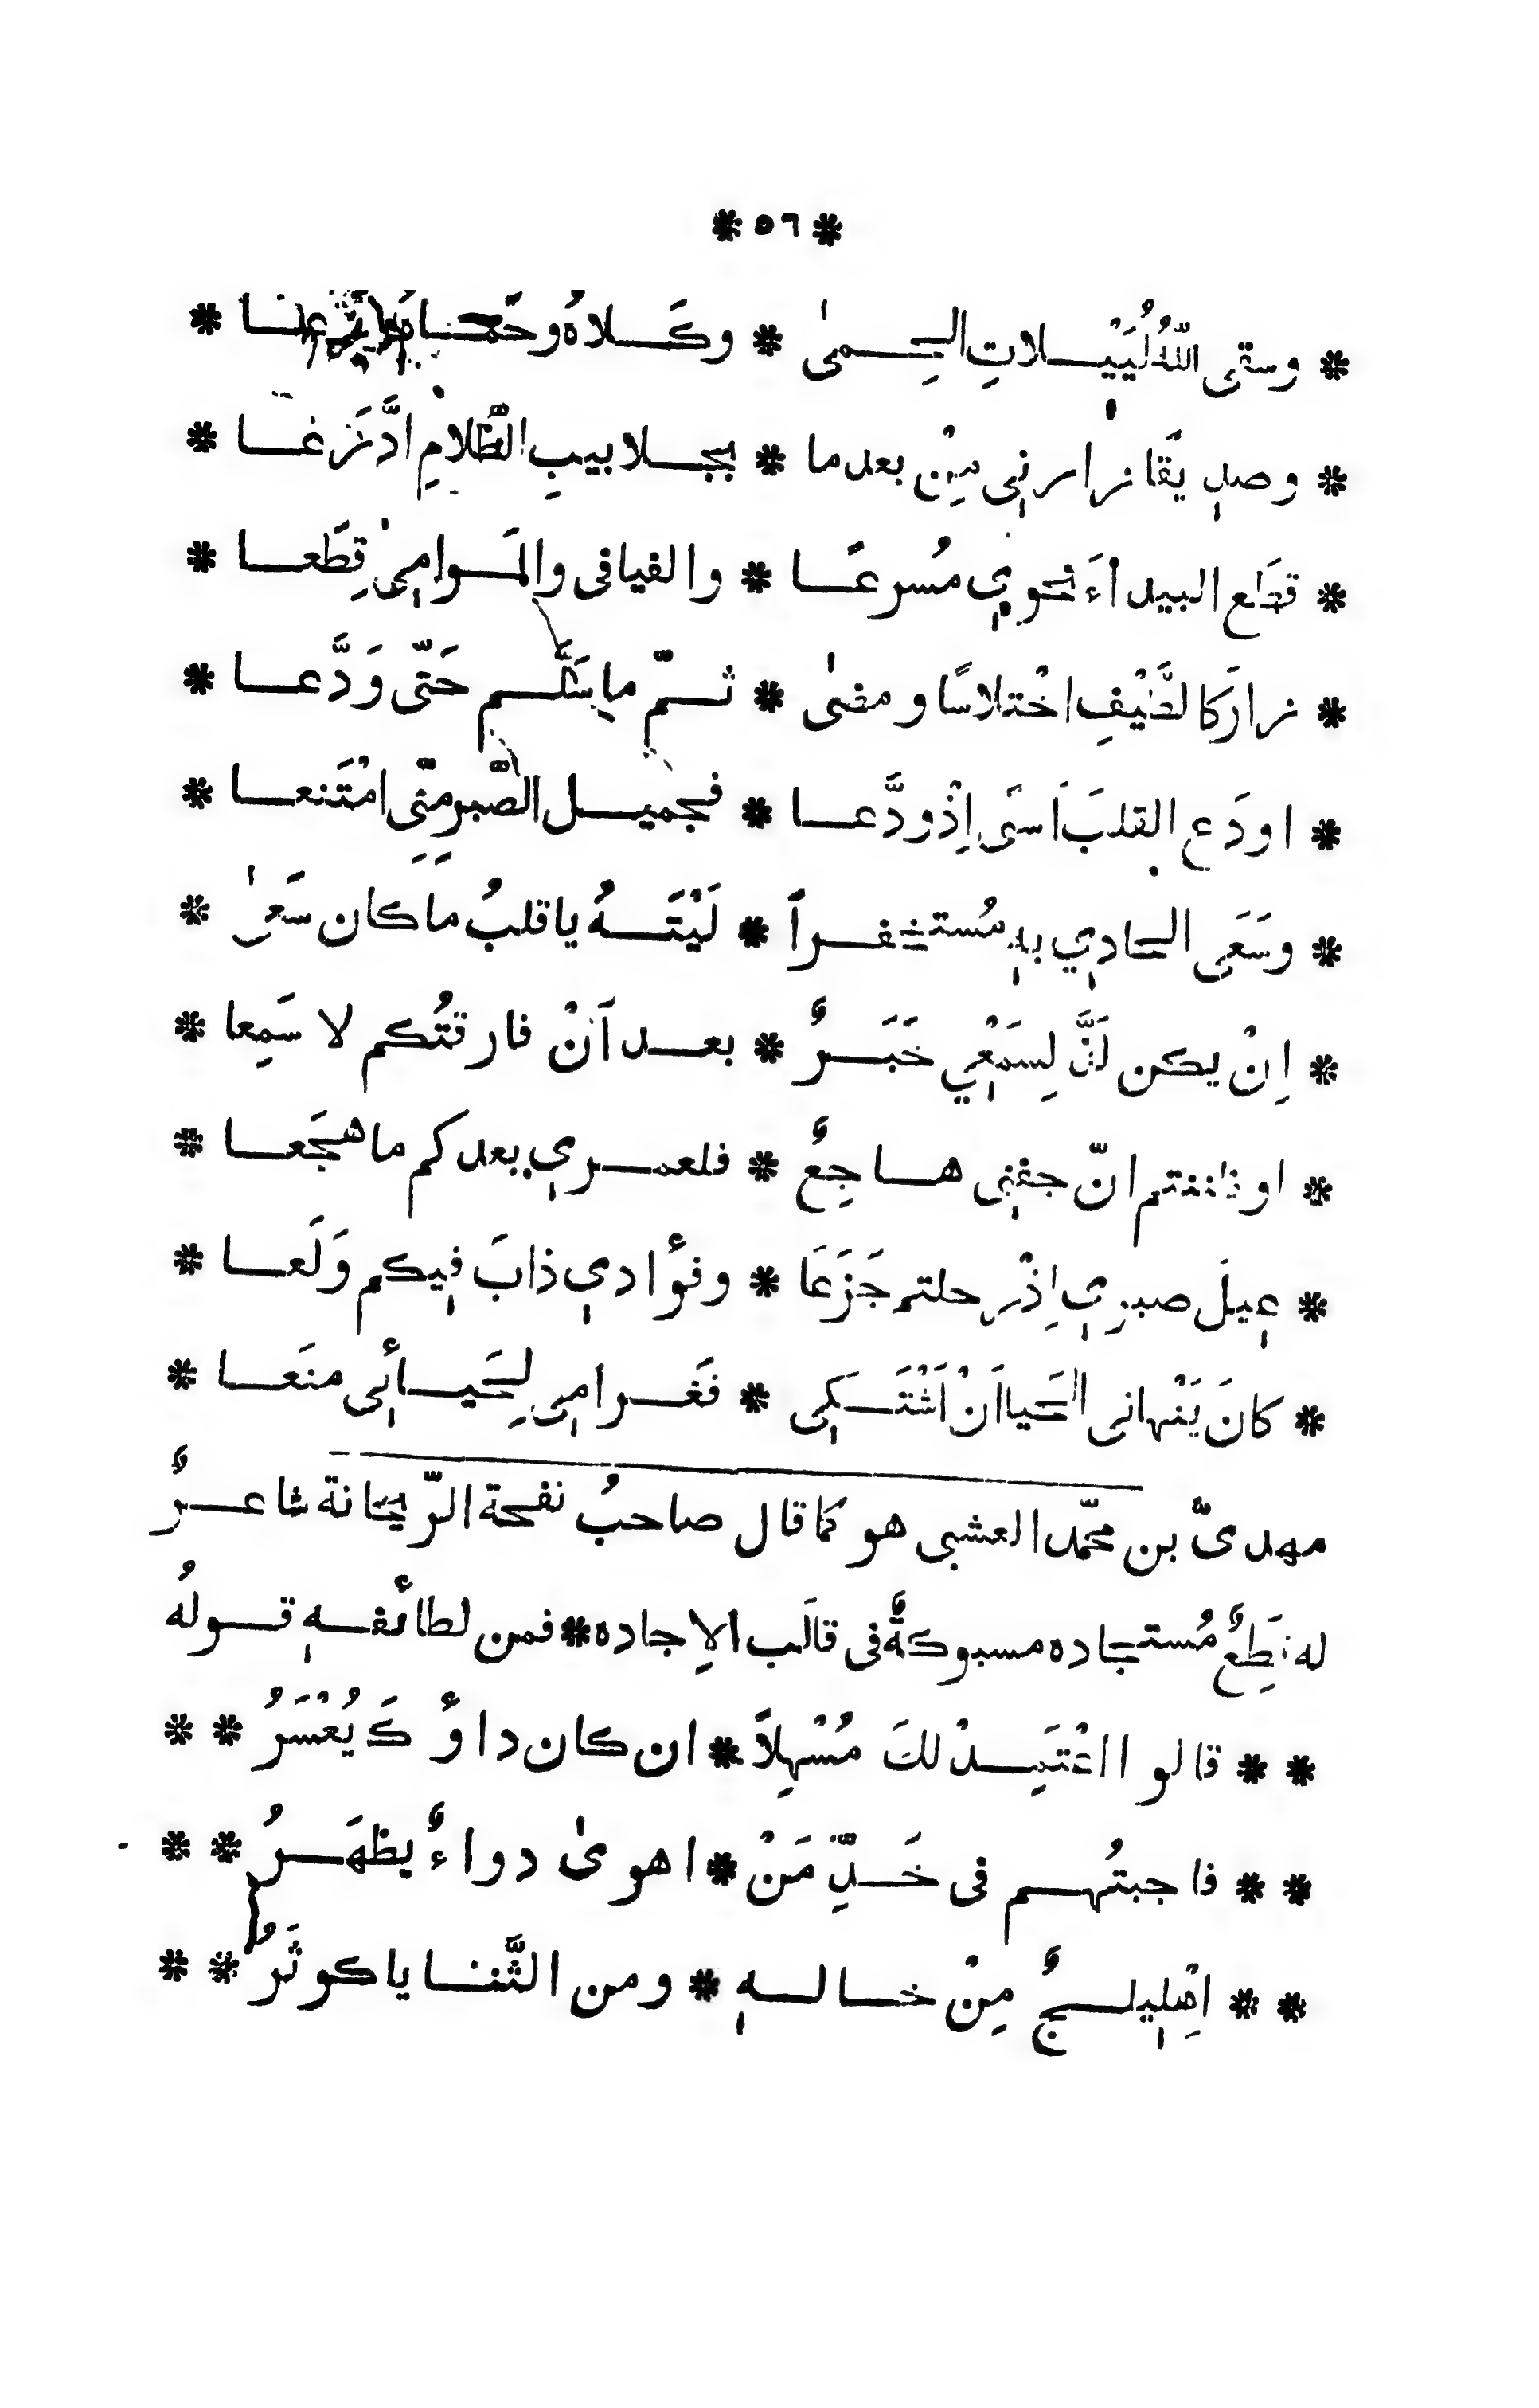 * ٥٦ *
* وسقى اللّٰهُ لُيَيْلاتِ الحِمىٰ * وكَلاهُ وحَمَّاهُ *
* وصدِيقًا زارنِي مِنْ بعدما * بجلابيبِ الظَّلامِ ادَّرَعَا *
* قطَع البيداءَ نحوِي مُسرعًا * والفيافى والمَوامِىٰ قِطَعا *
* زارَ كالطَّيْفِ اخْتلاسًا ومضىٰ * ثمّ ما سَلَّم حَتّى وَدَّعا *
* اودَع القلبَ اَسىً اِذْ ودَّعا * فجميل الصّبرِ مِنّي امْتَنعا *
* وسَعَى الحادِي بهِ مُستفزاً * لَيْتَهُ ياقلبُ ما كان سَعىٰ *
* اِنْ يكن لَذَّ لِسَمْعِي خَبَرٌ * بعد اَنْ فارقتُكم لا سَمِعا *
* اوظننتم انّ جفنِى هاجِعٌ * فلعمرِي بعدكم ما هجَعا *
* عِيلَ صبرِي اِذْ رحلتم جَزَعَا * وفؤادِي ذابَ فِيكم وَلَعا *
* كانَ يَنْهانى الحَيا اَنْ اَشْتَكِى * فَغَرامِى لِحَيائِى منَعا *
مهدىّ بن محمّد العشبى هو كما قال صاحبُ نفحة الرّيحانة شاعرٌ
له قِطَعٌ مُستجاده مسبوكةٌ فى قالَب الاِجاده * فمن لطائفهِ قولهُ
* * قالوا اعْتَمِدْ لكَ مُسْهِلاً * ان كان داؤكَ يُعْسَرُ * *
* * فاجبتُهم فى خَدِّ مَنْ * اهوىٰ دواءٌ يظهَرُ * *
* * اِهْلِيلجٌ مِنْ خالهِ * ومن الثَّنايا كوثَرُ * *